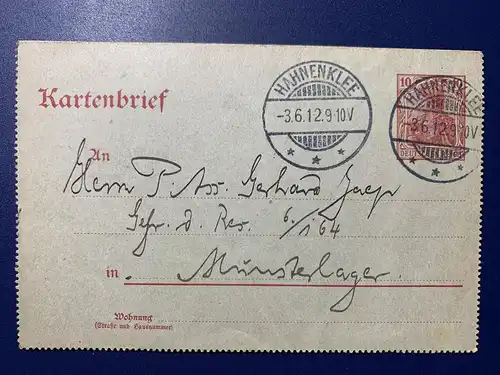 HAHNENKLEE
-3.6.12.9-10V
HAHNENKLEE
3.6.12.9-10V
10
Kartenbrief
An
Herrn P. Ass. Gerhard
Gefr. d. Res. 6./I 64
in Munsterlager.
Wohnung
(Straße und Hausnummer)